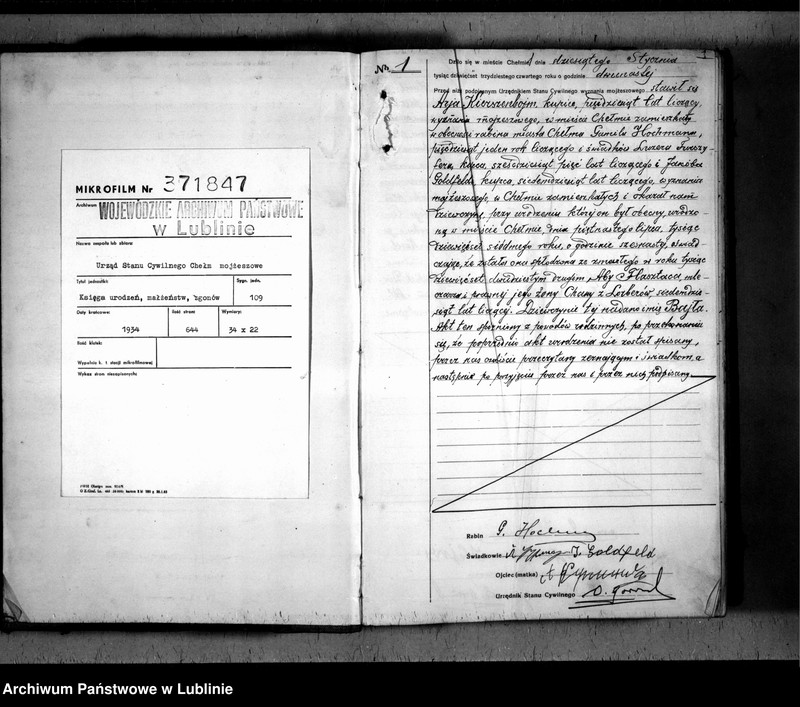 MIKROFILM Nr 371847
Archiwum
WOJEWÓDZKIE ARCHIWUM PAŃSTWOWE
w Lublinie
Nazwa zespołu lub zbioru
Urząd Stanu Cywilnego Chełm mojżeszowe
Tytuł jednostki
Sygn. jedn.
Księga urodzeń, małżeństw, zgonów
109
Daty krańcowe:
Ilość stron
Wymiary:
1934
644
34 x 22
Ilość klatek:
Wypełnia k. t. stacji mikrofilmowej
Wykaz stron niezapisanych:
№ 1
1
Działo się w mieście Chełmie, dnia dziesiątego Stycznia
tysiąc dziewięćset trzydziestego czwartego roku o godzinie dwunastej
Przed niżej podpisanym Urzędnikiem Stanu Cywilnego wyznania mojżeszowego stawił się
kupiec, lat liczący,
wyznania mojżeszowego, w mieście Chełmie zamieszkały
w obecności rabina miasta Chełma Hochmana,
pięćdziesiąt jeden rok liczącego i świadków
kupca, sześćdziesiąt pięć lat liczącego i Jankla
Goldfelda kupca, siedemdziesiąt lat liczącego, wyznania
mojżeszowego, w Chełmie zamieszkałych i okazał nam
dziewczynę, przy urodzeniu której on był obecny, urodzo-
ną w mieście Chełmie, dnia piętnastego lipca, tysiąc
dziewięćset siódmego roku, o godzinie szesnastej, oświad-
czając, że została ona spłodzona ze zmarłego w roku tysiąc
dziewięćset dwudziestym drugim, Aby
i prawnej jego żony z Lerberów, siedemdzie-
siąt lat liczącej. Dziewczynie tej nadano imię Bajla.
Akt ten spóźniony z powodów rodzinnych, po przekonaniu
się, że poprzednio akt urodzenia nie został spisany,
przez nas osobiście przeczytany zeznającym i świadkom, a
następnie po przyjęciu przez nas i przez nich podpisany
Rabin
Świadkowie J. Goldfeld
Ojciec (matka)
Urzędnik Stanu Cywilnego
Archiwum Państwowe w Lublinie